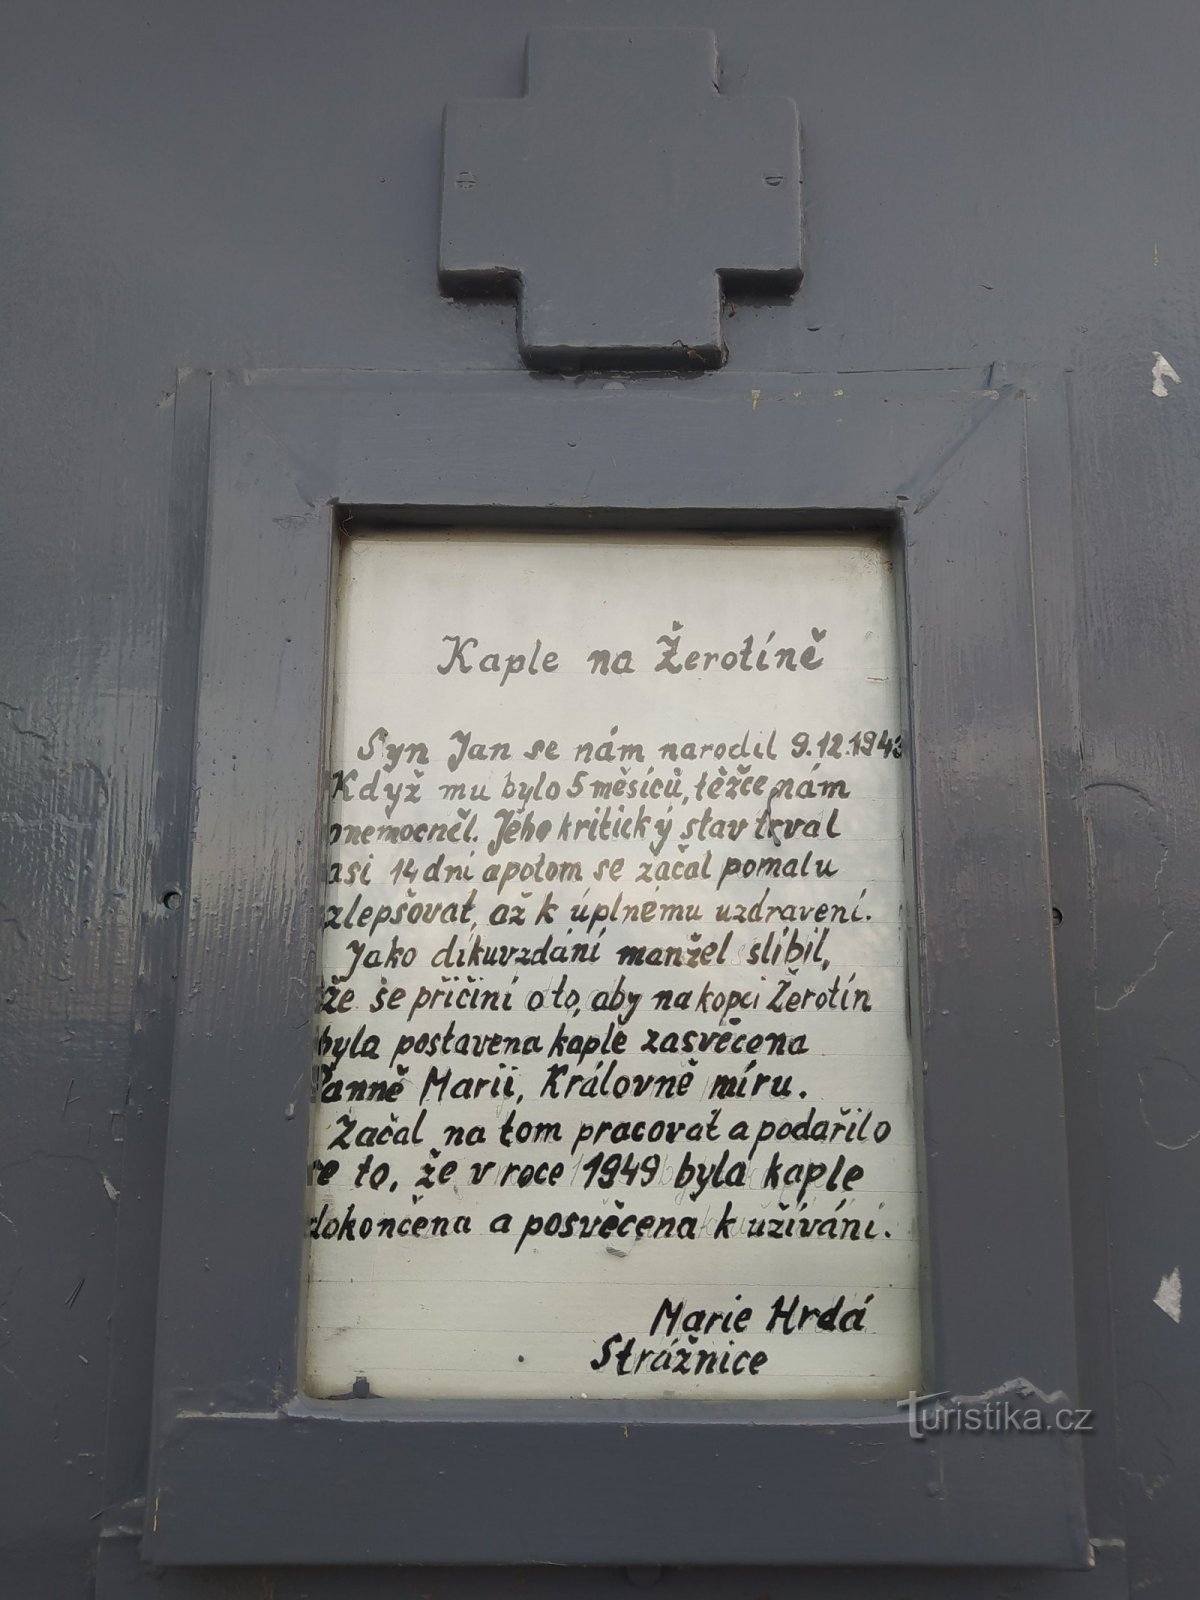 Kaple na Žerotíně
Syn Jan se nám narodil 9.12.1943
Když mu bylo 5 měsíců, těžce nám
onemocněl. Jeho kritický stav trval
asi 14 dní a potom se začal pomalu
zlepšovat, až k úplnému uzdravení.
Jako díkuvzdání manžel slíbil,
že se přičiní o to, aby na kopci Žerotín
byla postavena kaple zasvěcena
Panně Marii, Královně míru.
Začal na tom pracovat a podařilo
se to, že v roce 1949 byla kaple
dokončena a posvěcena k užívání.
Marie Hrdá
Strážnice
Turistika.cz